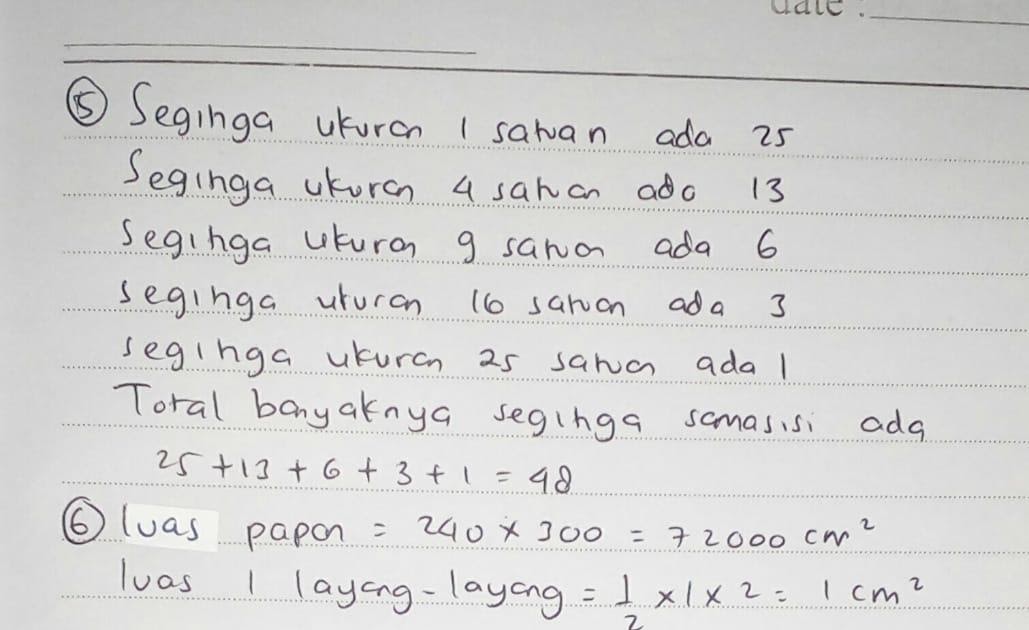 date :
⑤ Segihga ukuran 1 satuan ada 25
Segihga ukuran 4 satuan ada 13
Segihga ukuran 9 satuan ada 6
segihga ukuran 16 satuan ada 3
segihga ukuran 25 satuan ada 1
Total banyaknya segihga samasisi ada
25 + 13 + 6 + 3 + 1 = 48
⑥ luas papan = 240 x 300 = 72000 cm²
luas 1 layang-layang = 1/2 x 1 x 2 = 1 cm²